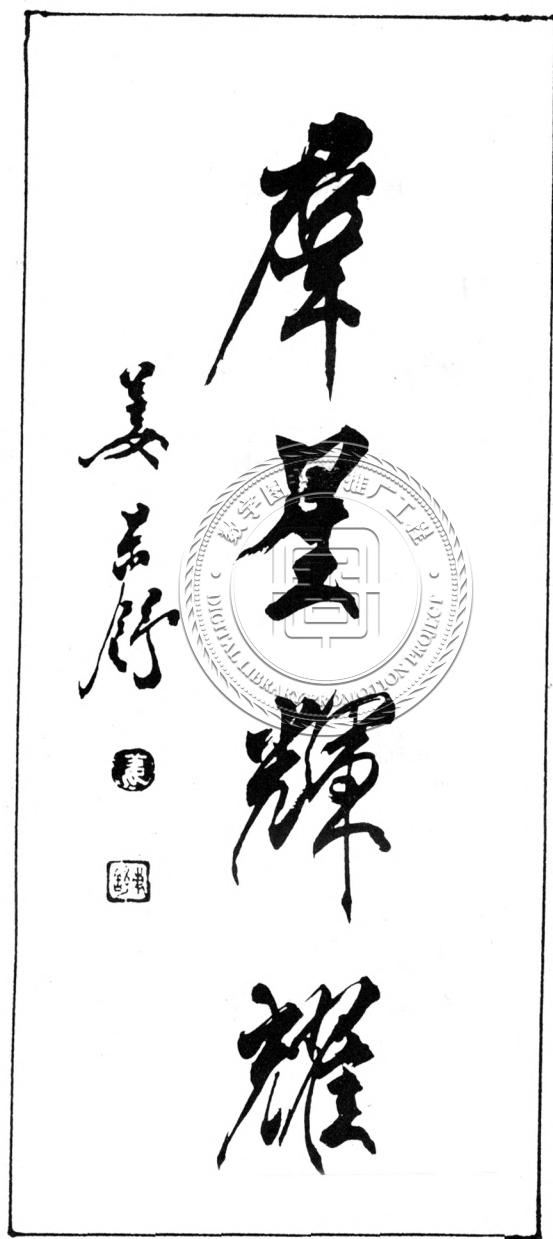 羣星輝耀
姜东舒
数字图书馆推广工程
DIGITAL LIBRARY PROMOTION PROJECT